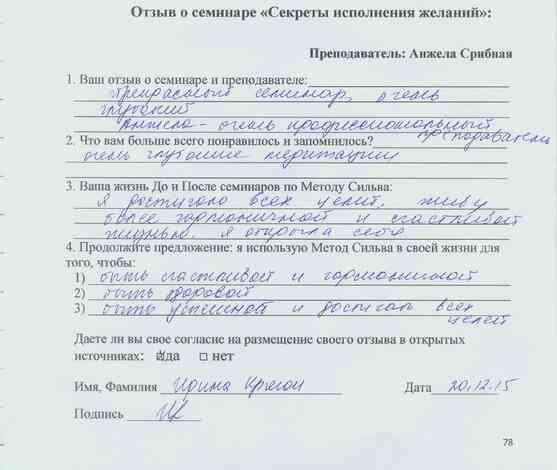 Отзыв о семинаре «Секреты исполнения желаний»:
Преподаватель: Анжела Срибная
1. Ваш отзыв о семинаре и преподавателе:
Прекрасный семинар, очень
глубокий
Анжела - очень профессиональный преподаватель
2. Что вам больше всего понравилось и запомнилось?
очень глубокие медитации
3. Ваша жизнь До и После семинаров по Методу Сильва:
Я достигаю всех целей, живу
более гармоничной и счастливой
жизнью. Я открыла себя
4. Продолжите предложение: я использую Метод Сильва в своей жизни для
того, чтобы:
1) быть счастливой и гармоничной
2) быть здоровой
3) быть успешной и достигать всех
целей
Даете ли вы свое согласие на размещение своего отзыва в открытых
источниках: да нет
Имя, Фамилия Ирина Дата 20.12.15
Подпись
78